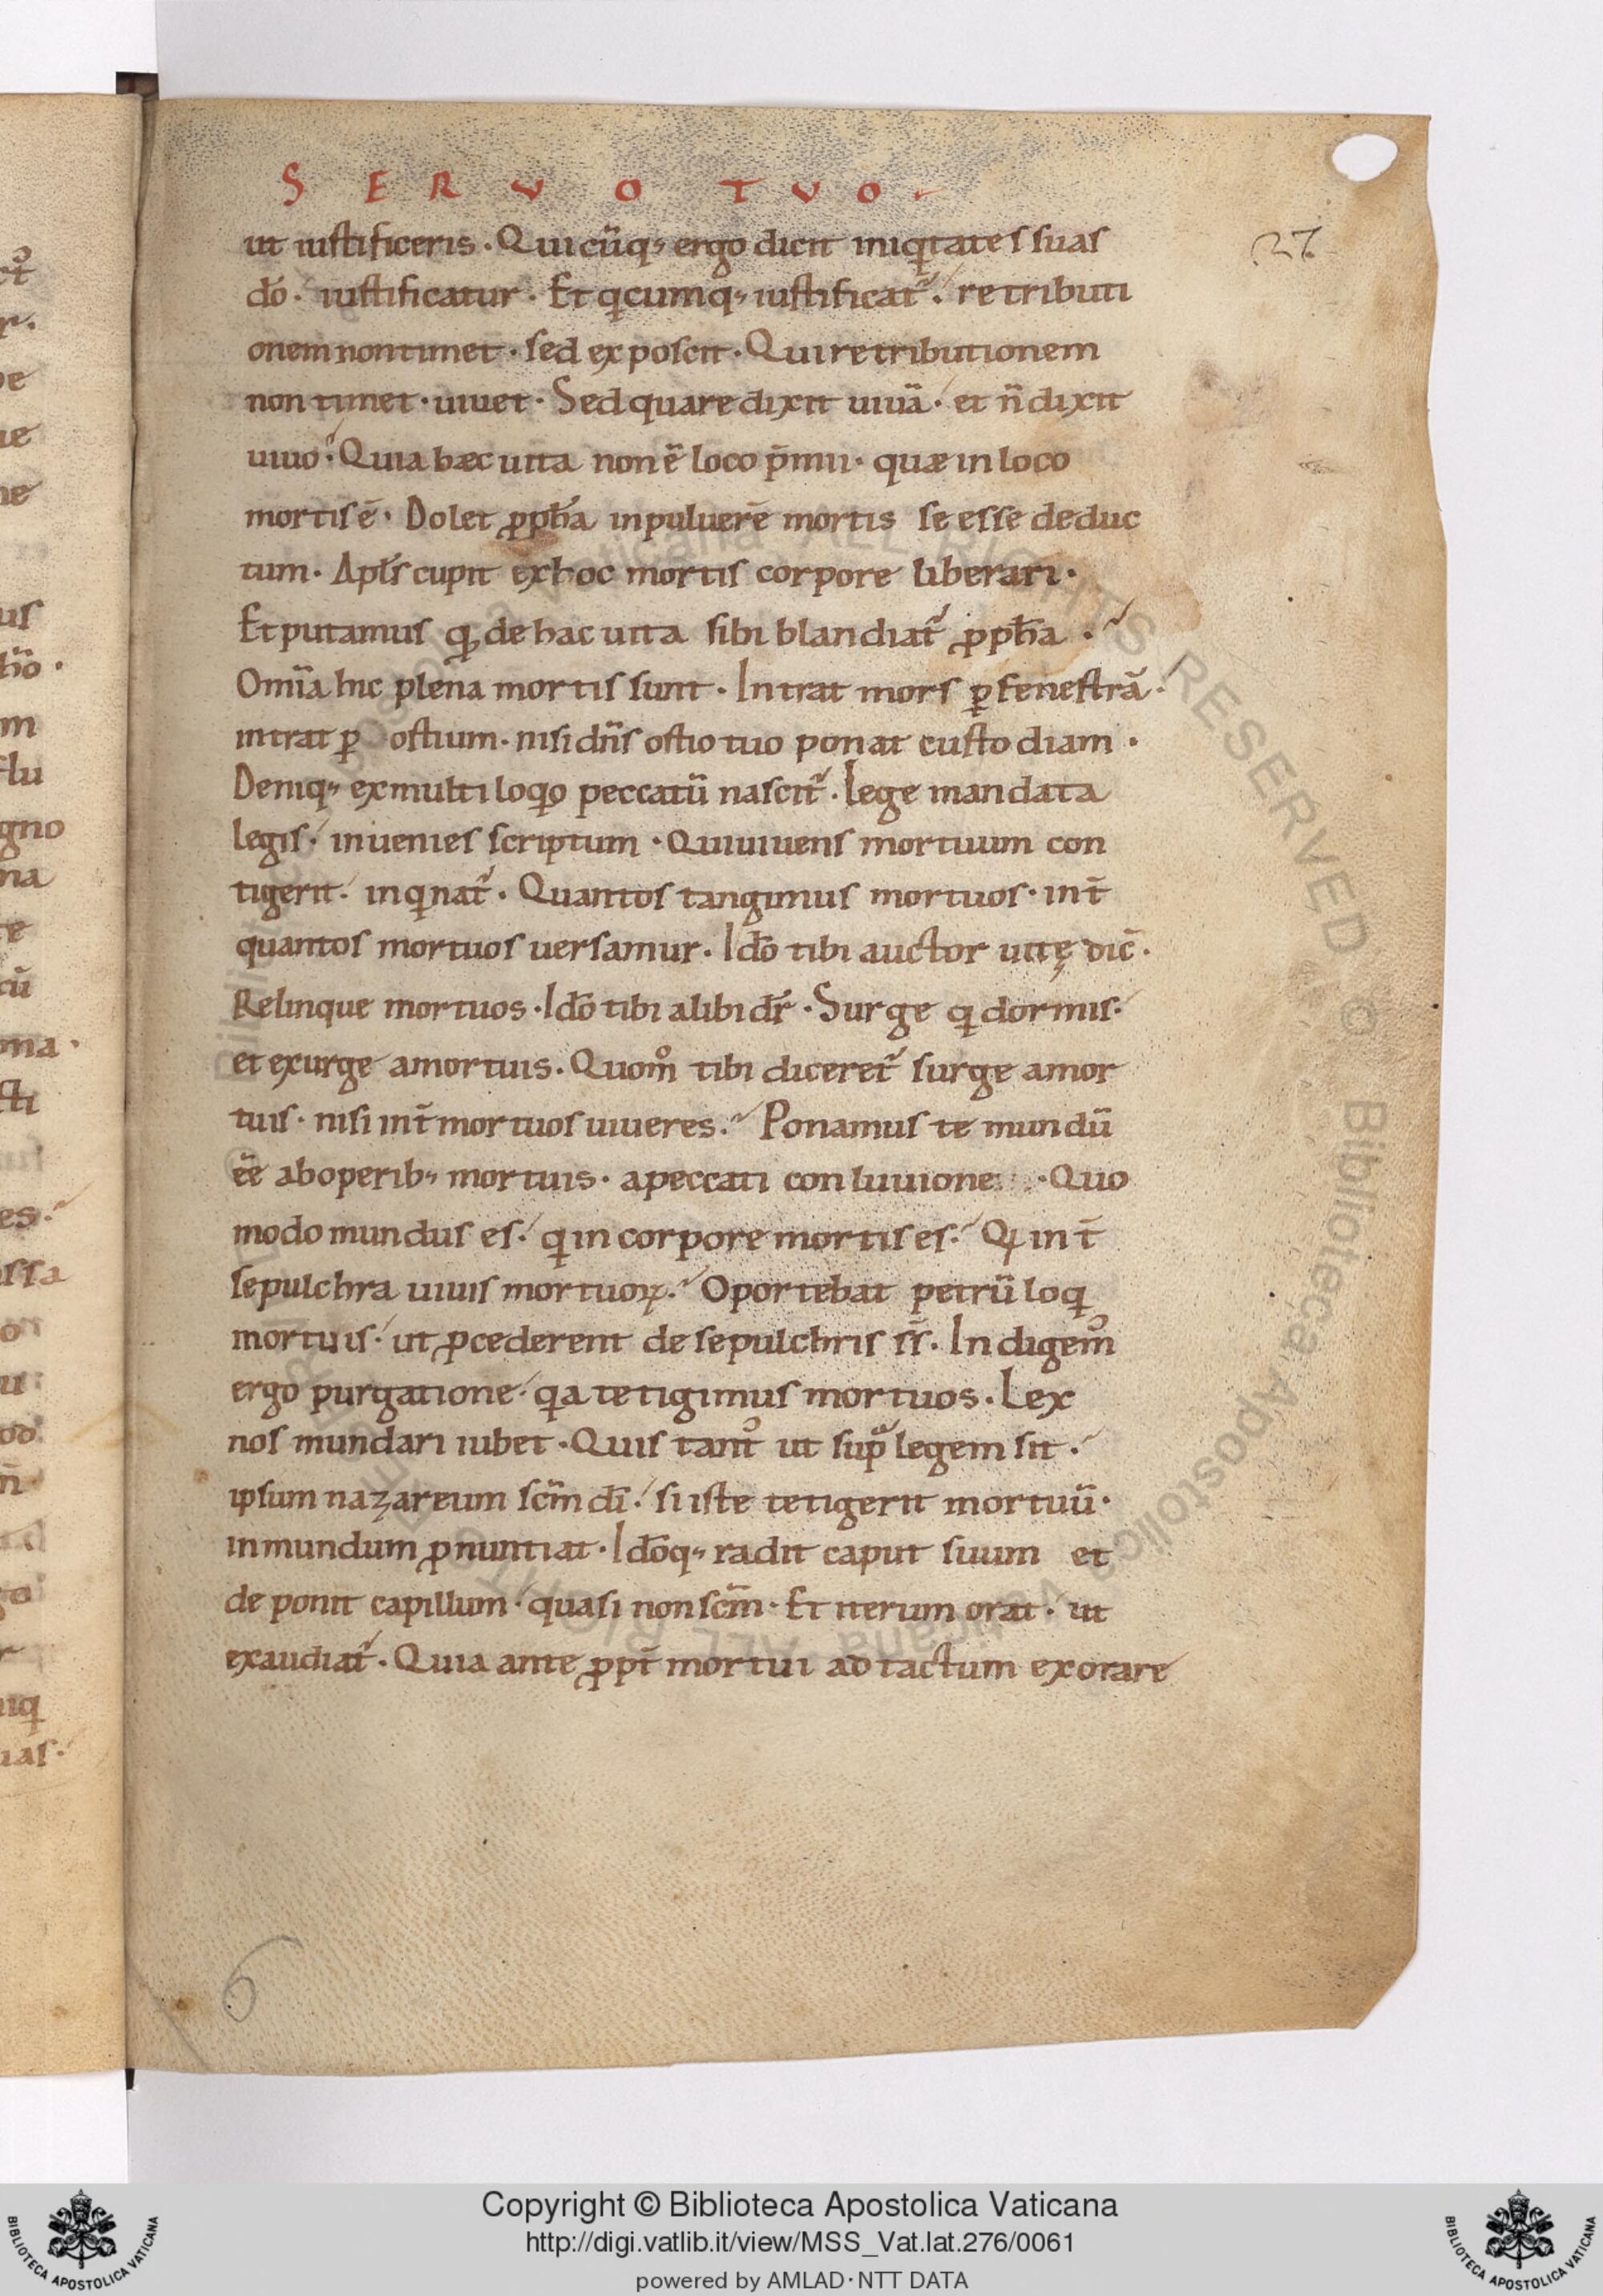 SERVO TVO
27
ut iustificeris. Quicūq; ergo dicit iniqͥtates suas
dō. iustificatur. Et qͥcumq; iustificat᷑. retributi
onem non timet. sed exposcit. Qui retributionem
non timet. uiuet. Sed quare dixit uiuā. et n̄ dixit
uiuo. Quia hæc uita non ē loco p̄mii. quæ in loco
mortis ē. Dolet ꝓph̄a in puluerē mortis se esse deduc
tum. Apl̄s cupit ex hoc mortis corpore liberari.
Et putamus qđ de hac uita sibi blandiat᷑ ꝓph̄a.
Omīa hic plena mortis sunt. Intrat mors ꝑ fenestrā.
intrat ꝑ ostium. nisi dn̄s ostio tuo ponat custodiam.
Deniq; ex multiloqͦo peccatū nascit᷑. Lege mandata
legis. inuenies scriptum. Qui uiuens mortuum con
tigerit. inqͥnat᷑. Quantos tangimus mortuos. int̄
quantos mortuos uersamur. Idō tibi auctor uitę dic̄.
Relinque mortuos. Idō tibi alibi dr̄. Surge qͥ dormis.
et exurge a mortuis. Quom̊ tibi diceret᷑ surge a mor
tuis. nisi int̄ mortuos uiueres. Ponamus te mundū
ēē ab operib; mortuis. a peccati conluuione. Quo
modo mundus es. qͥ in corpore mortis es. Qͥ int̄
sepulchra uiuis mortuoꝝ. Oportebat petrū loqͥ
mortuis. ut ꝓcederent de sepulchris ss̄. Indigemꝰ
ergo purgatione. qͥa tetigimus mortuos. Lex
nos mundari iubet. Quis tantꝰ ut sup̄ legem sit.
ipsum nazareum sc̄m dī. si iste tetigerit mortuū.
inmundum ꝓnuntiat. Idōq; radit caput suum et
deponit capillum. quasi non sc̄m. Et iterum orat. ut
exaudiat᷑. Quia ante ꝓpt̄ mortui adtactum exorare
6
Copyright © Biblioteca Apostolica Vaticana
http://digi.vatlib.it/view/MSS_Vat.lat.276/0061
powered by AMLAD·NTT DATA
BIBLIOTECA APOSTOLICA VATICANA
BIBLIOTECA APOSTOLICA VATICANA